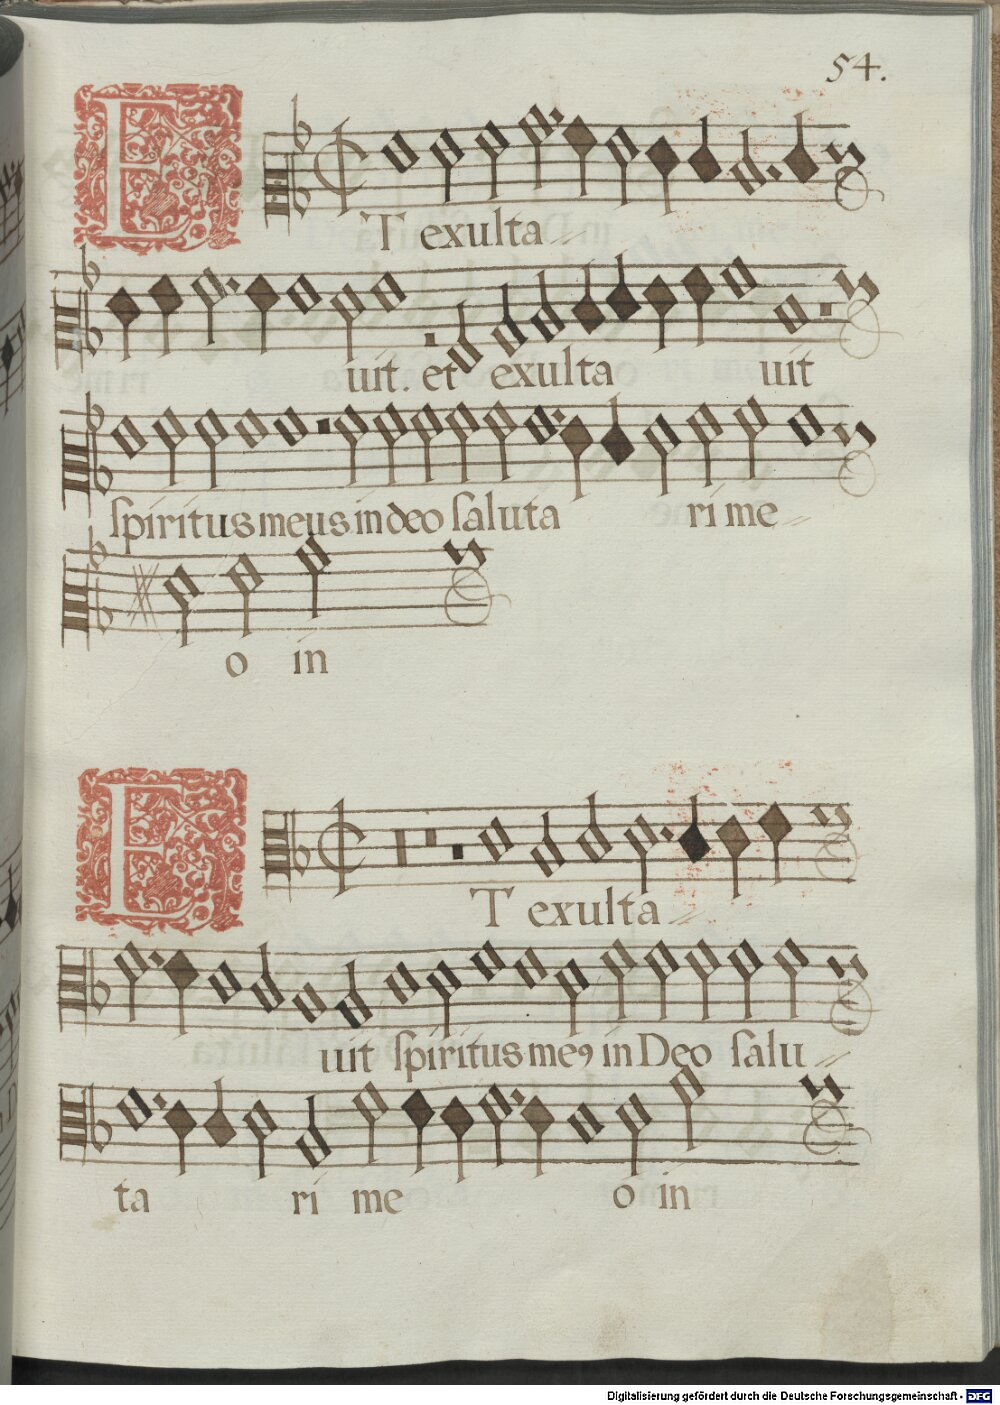 54.
ET exulta
uit. et exulta uit
spiritus meus in deo saluta ri me
o in
ET exulta
uit spiritus meꝰ in Deo salu
ta ri me o in
Digitalisierung gefördert durch die Deutsche Forschungsgemeinschaft - DFG